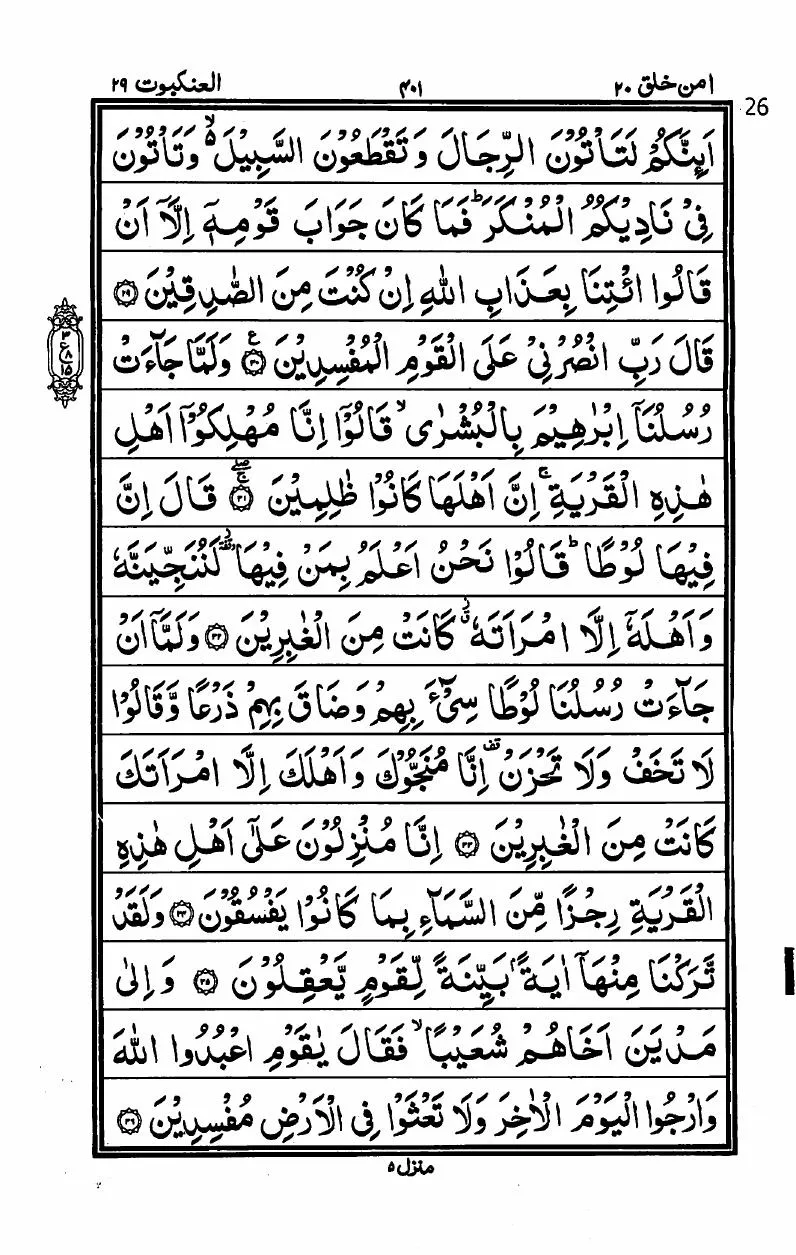 امن خلق ۲۰
۴۰۱
العنکبوت ۲۹
26
اَىِٕنَّكُمْ لَتَاْتُوْنَ الرِّجَالَ وَ تَقْطَعُوْنَ السَّبِيْلَ ۙ۬ وَتَاْتُوْنَ
فِيْ نَادِيْكُمُ الْمُنْكَرَ ؕ فَمَا كَانَ جَوَابَ قَوْمِهٖۤ اِلَّاۤ اَنْ
قَالُوا ائْتِنَا بِعَذَابِ اللّٰهِ اِنْ كُنْتَ مِنَ الصّٰدِقِيْنَ ۝۲۹
قَالَ رَبِّ انْصُرْنِيْ عَلَى الْقَوْمِ الْمُفْسِدِيْنَ ۝۳۰ ع وَلَمَّا جَآءَتْ
رُسُلُنَاۤ اِبْرٰهِيْمَ بِالْبُشْرٰى ۙ قَالُوْۤا اِنَّا مُهْلِكُوْۤا اَهْلِ
هٰذِهِ الْقَرْيَةِ ۚ اِنَّ اَهْلَهَا كَانُوْا ظٰلِمِيْنَ ۝۳۱ قَالَ اِنَّ
فِيْهَا لُوْطًا ؕ قَالُوْا نَحْنُ اَعْلَمُ بِمَنْ فِيْهَا ۥ لَنُنَجِّيَنَّهٗ
وَاَهْلَهٗۤ اِلَّا امْرَاَتَهٗ ۥ كَانَتْ مِنَ الْغٰبِرِيْنَ ۝۳۲ وَلَمَّاۤ اَنْ
جَآءَتْ رُسُلُنَا لُوْطًا سِيْٓءَ بِهِمْ وَضَاقَ بِهِمْ ذَرْعًا وَّقَالُوْا
لَا تَخَفْ وَلَا تَحْزَنْ ۫ اِنَّا مُنَجُّوْكَ وَاَهْلَكَ اِلَّا امْرَاَتَكَ
كَانَتْ مِنَ الْغٰبِرِيْنَ ۝۳۳ اِنَّا مُنْزِلُوْنَ عَلٰۤى اَهْلِ هٰذِهِ
الْقَرْيَةِ رِجْزًا مِّنَ السَّمَآءِ بِمَا كَانُوْا يَفْسُقُوْنَ ۝۳۴ وَلَقَدْ
تَّرَكْنَا مِنْهَاۤ اٰيَةًۢ بَيِّنَةً لِّقَوْمٍ يَّعْقِلُوْنَ ۝۳۵ وَاِلٰى
مَدْيَنَ اَخَاهُمْ شُعَيْبًا ۙ فَقَالَ يٰقَوْمِ اعْبُدُوا اللّٰهَ
وَارْجُوا الْيَوْمَ الْاٰخِرَ وَلَا تَعْثَوْا فِي الْاَرْضِ مُفْسِدِيْنَ ۝۳۶
۳
ع ۸
۱۵
منزل ۵